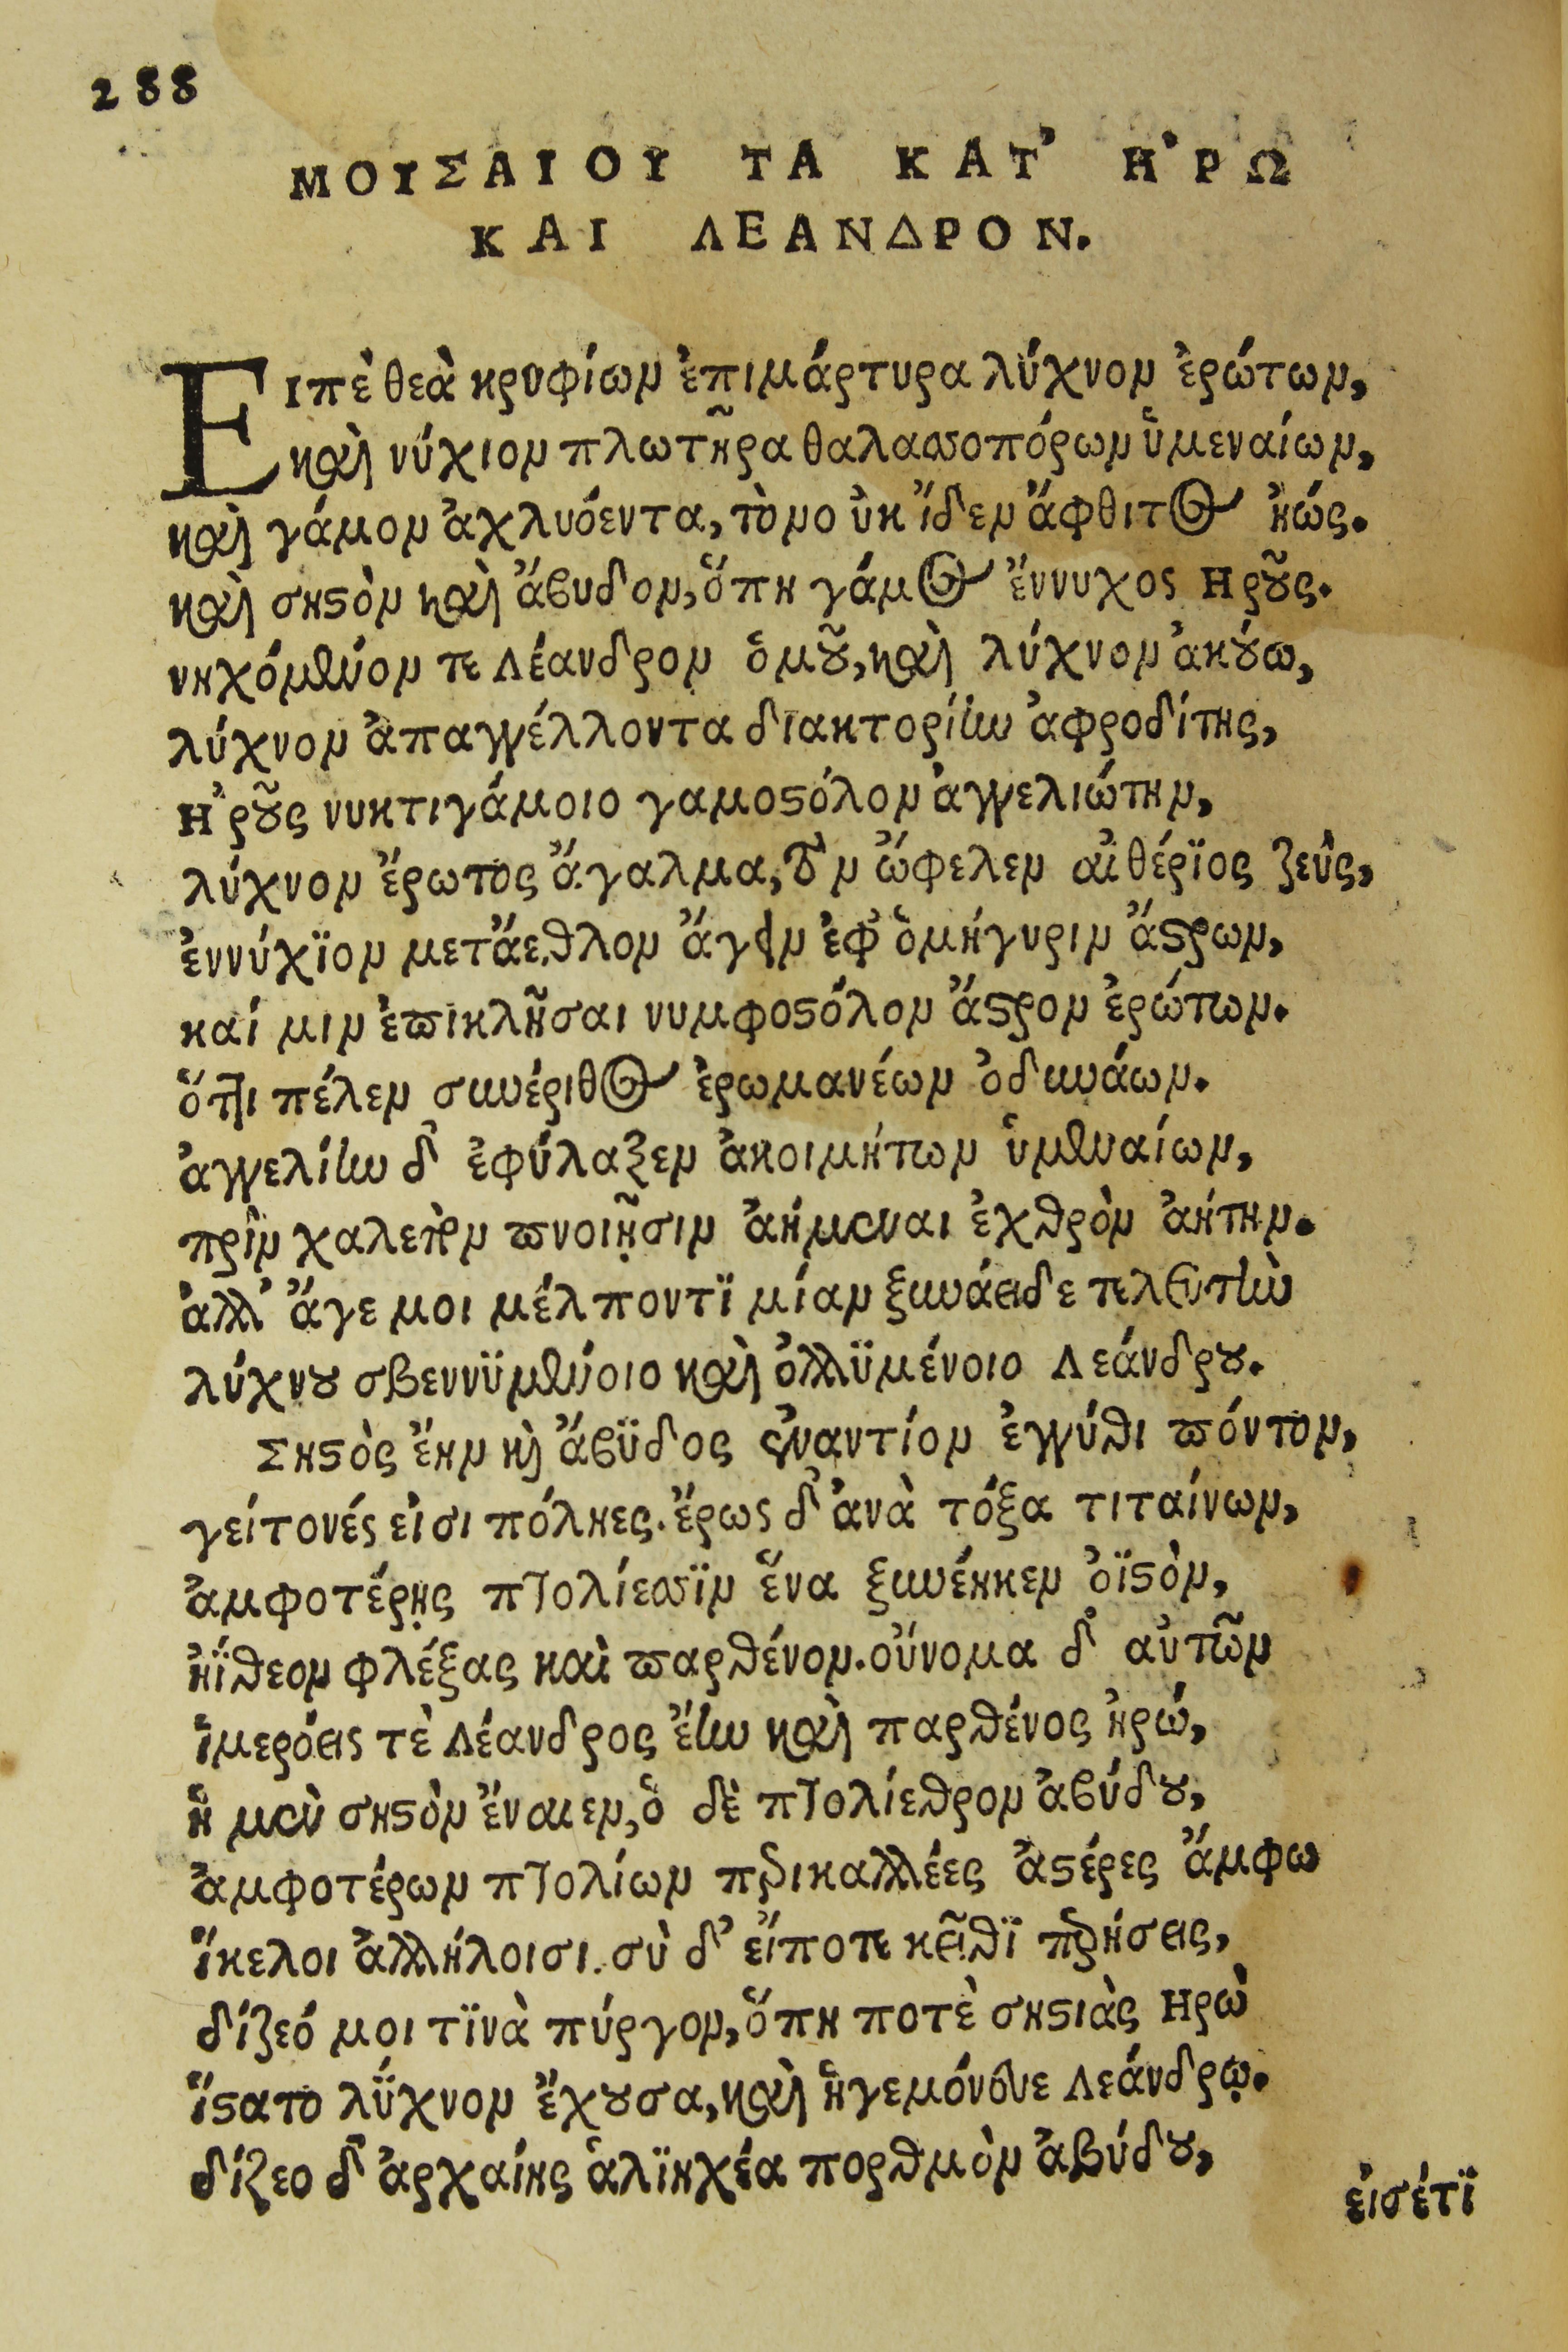 288
ΜΟΥΣΑΙΟΥ ΤΑ ΚΑΤ᾽ Η᾽ΡΩ
ΚΑΙ ΛΕΑΝΔΡΟΝ.
Εἰπὲ θεὰ κρυφίων ἐπιμάρτυρα λύχνον ἐρώτων,
καὶ νύχιον πλωτῆρα θαλασσοπόρων ὑμεναίων,
καὶ γάμον ἀχλυόεντα, τὸν οὐκ ἴδεν ἄφθιτος ἠώς.
καὶ σηστὸν καὶ ἄβυδον, ὅπη γάμος ἔννυχος Ηροῦς.
νηχόμενόν τε Λέανδρον ὁμοῦ, καὶ λύχνον ἀκούω,
λύχνον ἀπαγγέλλοντα διακτορίην ἀφροδίτης,
Η᾽ροῦς νυκτιγάμοιο γαμοστόλον ἀγγελιώτην,
λύχνον ἔρωτος ἄγαλμα, τὸν ὤφελεν αἰθέρϊος ζεὺς,
ἐννύχϊον μετ᾽ ἄεθλον ἄγειν ἐφ᾽ ὁμήγυριν ἄστρων,
καί μιν ἐπικλῆσαι νυμφοστόλον ἄστρον ἐρώτων.
ὅττι πέλεν συνέριθος ἐρωμανέων ὀδυνάων.
ἀγγελίην δ᾽ ἐφύλαξεν ἀκοιμήτων ὑμεναίων,
πρὶν χαλεπὸν πνοιῇσιν ἀήμεναι ἐχθρὸν ἀήτην.
ἀλλ᾽ ἄγε μοι μέλποντϊ μίαν ξυνάειδε τελευτὴν
λύχνου σβεννϋμένοιο καὶ ὀλλϋμένοιο Λεάνδρου.
Σηστὸς ἔην καὶ ἄβϋδος ἐναντίον ἐγγύθι πόντον,
γείτονές εἰσι πόληες. ἔρως δ᾽ ἀνὰ τόξα τιταίνων,
ἀμφοτέρῃς πτολίεσσϊν ἕνα ξυνέηκεν ὀϊστὸν,
ἠΐθεον φλέξας καὶ παρθένον. οὔνομα δ᾽ αὐτῶν
ἱμερόεις τὲ Λέανδρος ἔην καὶ παρθένος ἡρώ,
ἡ μὲν σηστὸν ἔναιεν, ὁ δὲ πτολίεθρον ἀβύδου,
ἀμφοτέρων πτολίων περικαλλέες ἀστέρες ἄμφω
ἴκελοι ἀλλήλοισι. σὺ δ᾽ εἴποτε κεῖθϊ περήσεις,
δίζεό μοι τϊνὰ πύργον, ὅπη ποτὲ σηστιὰς Ηρὼ
ἵστατο λύχνον ἔχουσα, καὶ ἡγεμόνευε Λεάνδρῳ.
δίζεο δ᾽ ἀρχαίης ἁλϊηχέα πορθμὸν ἀβύδου,
εἰσέτϊ